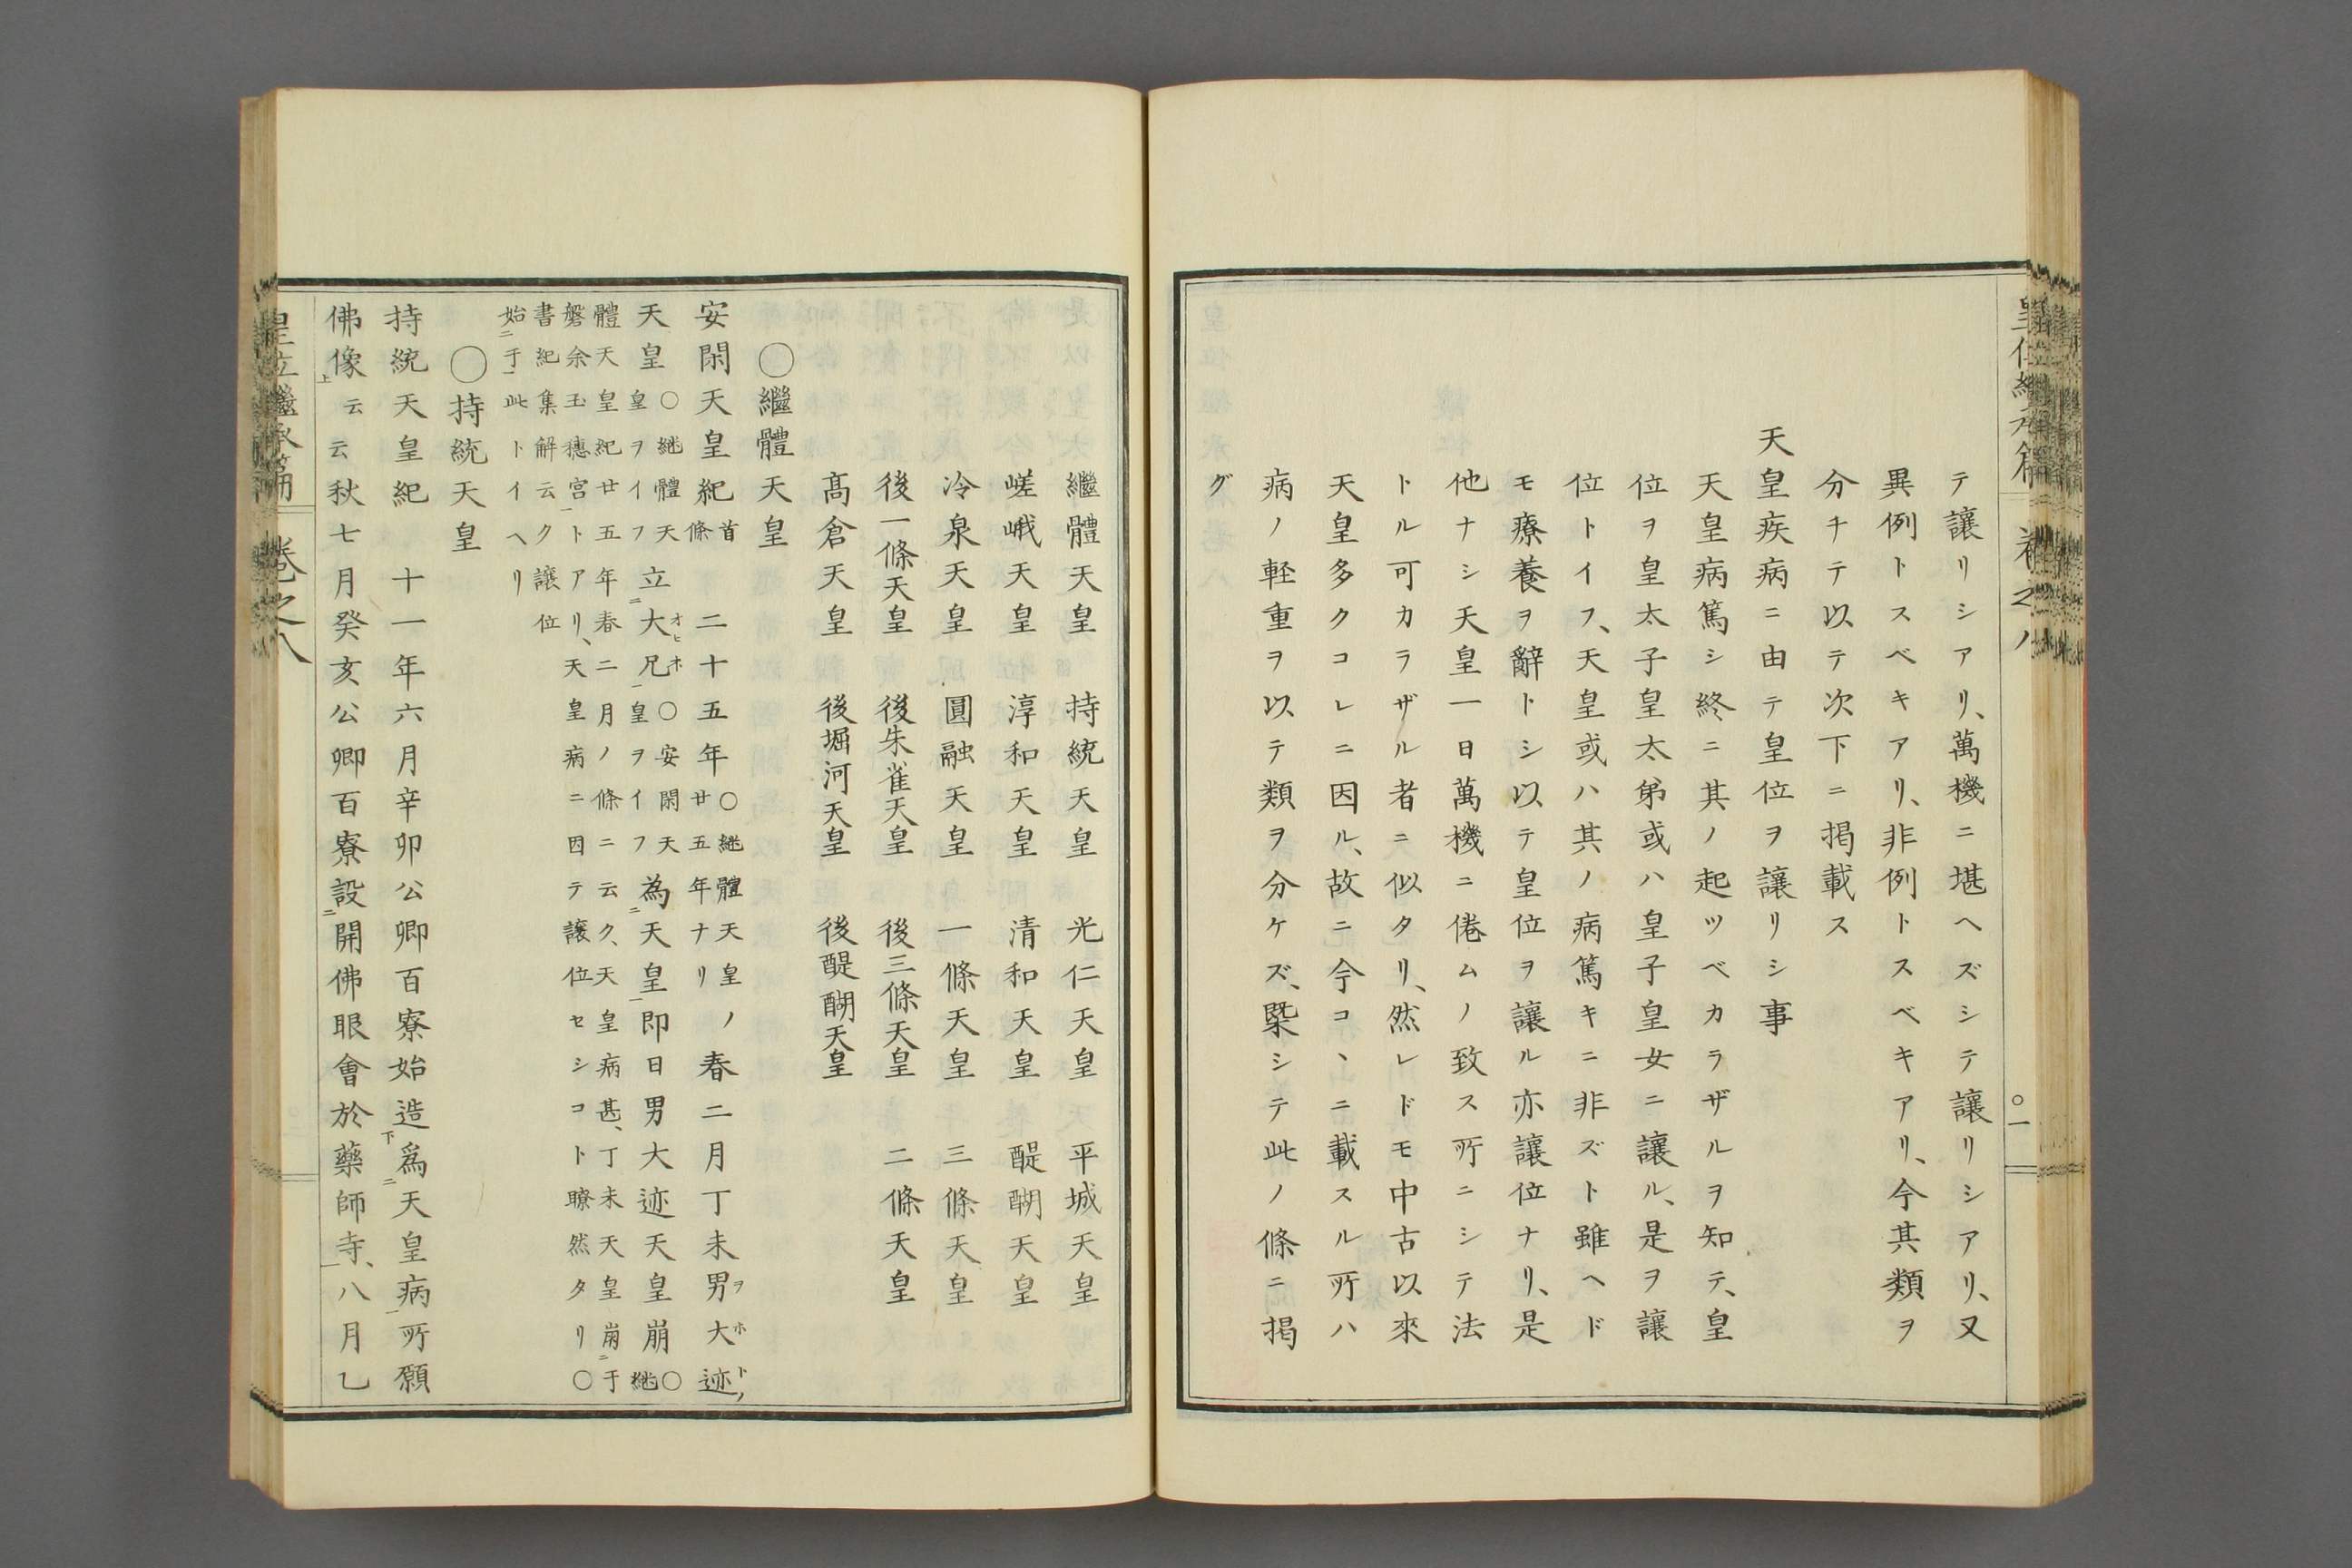 テ讓リシアリ、萬機ニ堪ヘズシテ讓リシアリ、又
異例トスベキアリ、非例トスベキアリ、今其類ヲ
分チテ以テ次下ニ掲載ス
天皇疾病ニ由テ皇位ヲ讓リシ事
天皇病篤シ終ニ其ノ起ツベカラザルヲ知テ、皇
位ヲ皇太子皇太弟或ハ皇子皇女ニ讓ル、是ヲ讓
位トイフ、天皇或ハ其ノ病篤キニ非ズト雖ヘド
モ療養ヲ辭トシ以テ皇位ヲ讓ル亦讓位ナリ、是
他ナシ天皇一日萬機ニ倦ムノ致ス所ニシテ法
トル可カラザル者ニ似タリ、然レドモ中古以來
天皇多クコレニ因ル、故ニ今コヽニ載スル所ハ
病ノ軽重ヲ以テ類ヲ分ケズ、槩シテ此ノ條ニ掲
グ
皇位繼承篇 卷之八 〇一
繼體天皇 持統天皇 光仁天皇 平城天皇
嵯峨天皇 淳和天皇 清和天皇 醍醐天皇
冷泉天皇 圓融天皇 一條天皇 三條天皇
後一條天皇 後朱雀天皇 後三條天皇 二條天皇
髙倉天皇 後堀河天皇 後醍醐天皇
〇繼體天皇
安閑天皇紀首條 二十五年〇継體天皇ノ廿五年ナリ 春二月丁未男大迹
天皇〇継體天皇ヲイフ立大兄〇安閑天皇ヲイフ為天皇即日男大迹天皇崩〇継
體天皇紀廿五年春二月ノ條ニ云ク、天皇病甚、丁未天皇崩于
磐余玉穗宮トアリ、天皇病ニ因テ讓位セシコト瞭然タリ〇
書紀集解云ク讓位
始于此トイヘリ
〇持統天皇
持統天皇紀 十一年六月辛卯公卿百寮始造爲天皇病所願
佛像云云秋七月癸亥公卿百寮設開佛眼會於藥師寺、八月乙
皇位繼承篇 卷之八